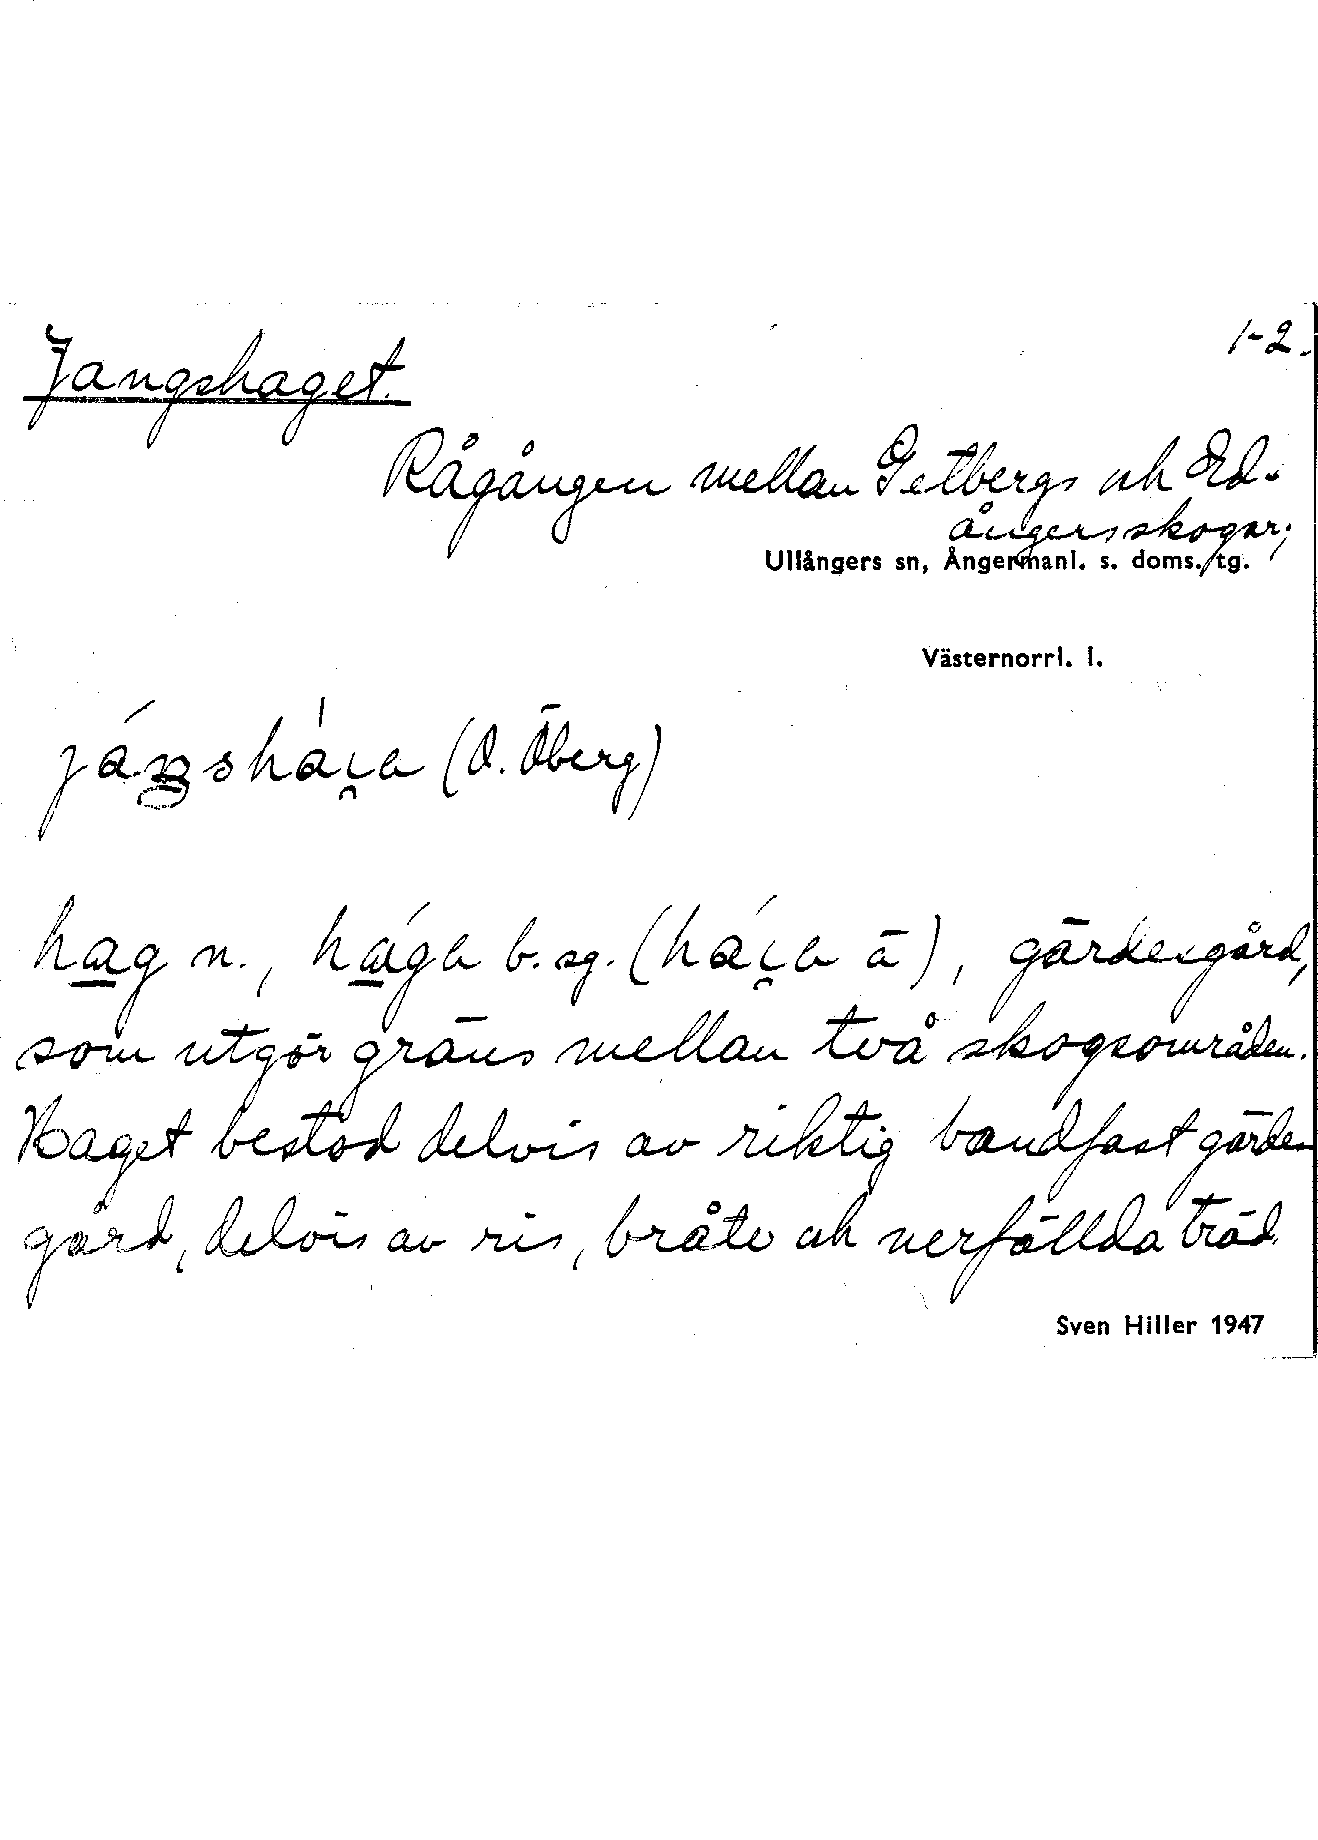 Jangshaget.
1-2.
Rågången mellan Getbergs och Ed-
ångersskogar;
Ullångers sn, Ångermanl. s. doms. tg.
Västernorrl. l.
(O. Öberg)
hag n., b. sg. ( ä), gärdesgård,
som utgör gräns mellan två skogsområden.
Haget bestod delvis av riktig bandfast gärdes
gård, delvis av ris, bråte och nerfällda träd
Sven Hiller 1947